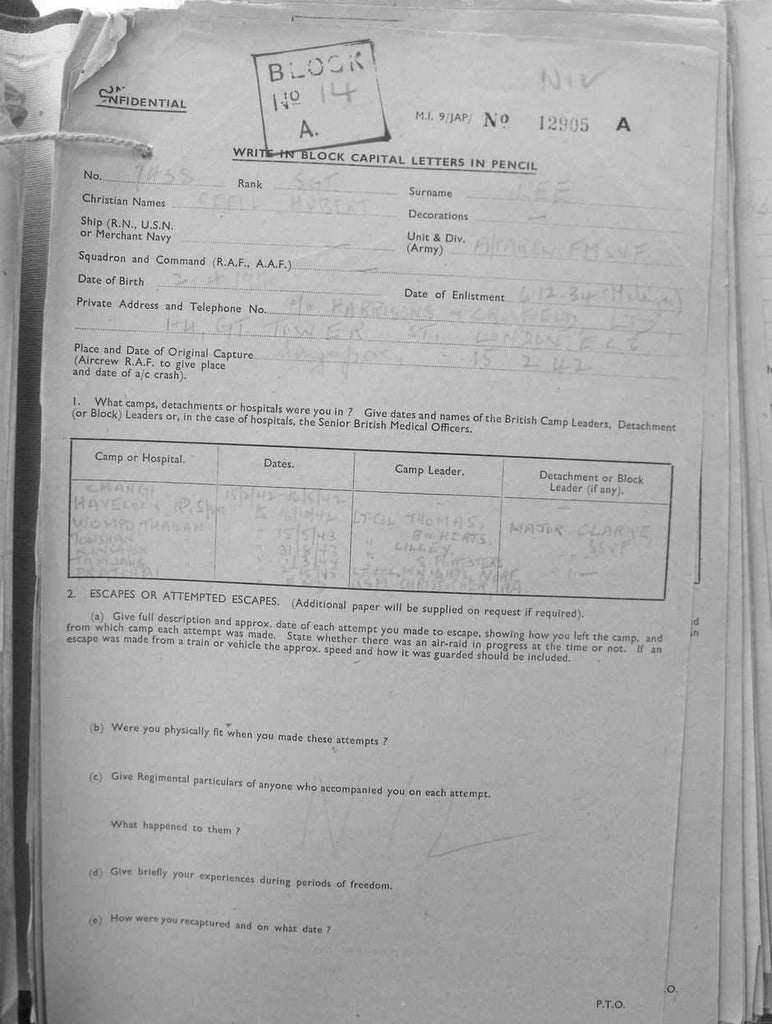 CONFIDENTIAL
BLOCK
No 14
A.
M.I. 9/JAP/ No 12905 A
WRITE IN BLOCK CAPITAL LETTERS IN PENCIL
No. 7488 Rank SGT Surname LEE
Christian Names CECIL HUBERT Decorations —
Ship (R.N., U.S.N.
or Merchant Navy — Unit & Div.
(Army) FMSVF
Squadron and Command (R.A.F., A.A.F.) —
Date of Birth Date of Enlistment 6.12.34 (Malaya)
Private Address and Telephone No. c/o HARRISONS & CROSFIELD LTD
1-4, GT TOWER ST. LONDON E.C.3
Place and Date of Original Capture Singapore 15 2 42
(Aircrew R.A.F. to give place
and date of a/c crash).
1. What camps, detachments or hospitals were you in ? Give dates and names of the British Camp Leaders, Detachment
(or Block) Leaders or, in the case of hospitals, the Senior British Medical Officers.
Camp or Hospital. Dates. Camp Leader. Detachment or Block
Leader (if any).
CHANGI 15/2/42
HAVELOCK RD, LT-COL THOMAS,
15/5/43 MAJOR CLARKE
31/8/43 LILLEY, SSVF
KINSAYOK S. FORESTERS
2. ESCAPES OR ATTEMPTED ESCAPES. (Additional paper will be supplied on request if required).
(a) Give full description and approx. date of each attempt you made to escape, showing how you left the camp, and
from which camp each attempt was made. State whether there was an air-raid in progress at the time or not. If an
escape was made from a train or vehicle the approx. speed and how it was guarded should be included.
(b) Were you physically fit when you made these attempts ?
(c) Give Regimental particulars of anyone who accompanied you on each attempt.
NIL
What happened to them ?
(d) Give briefly your experiences during periods of freedom.
(e) How were you recaptured and on what date ?
.O.
P.T.O.